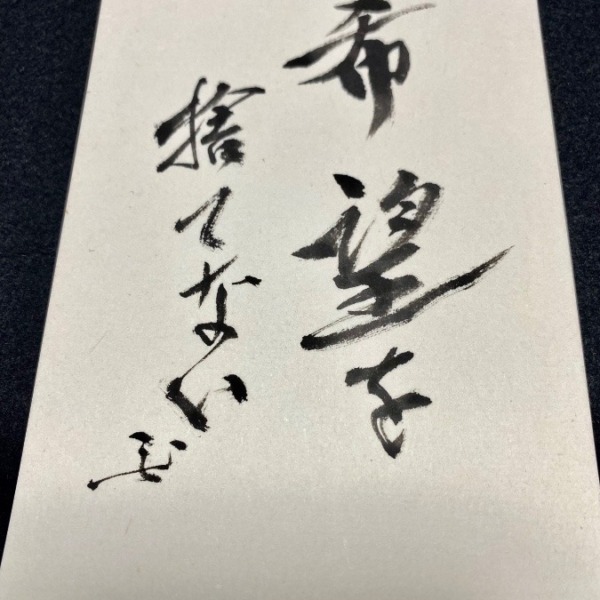 希望を
捨てない